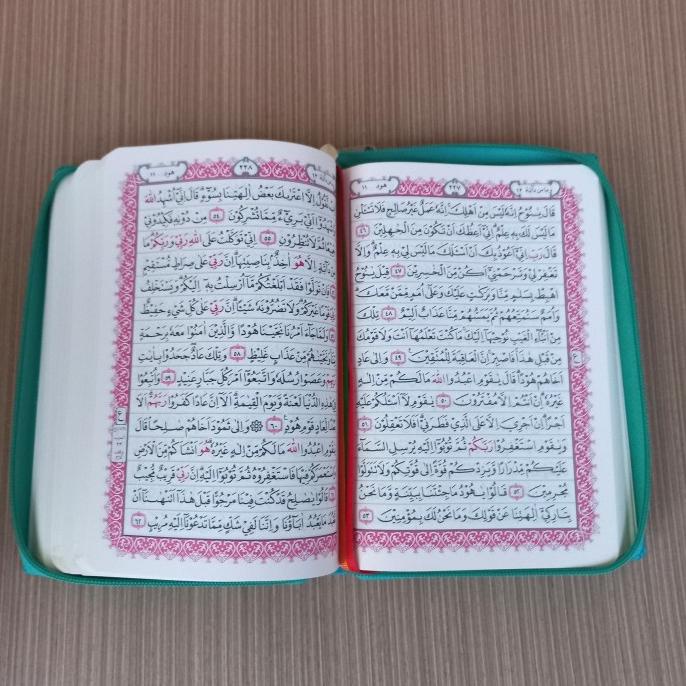 وما من دآبة ١٢
٢٢٧
هود ١١
قَالَ يَٰنُوحُ إِنَّهُۥ لَيْسَ مِنْ أَهْلِكَ إِنَّهُۥ عَمَلٌ غَيْرُ صَٰلِحٍ فَلَا تَسْـَٔلْنِ
مَا لَيْسَ لَكَ بِهِۦ عِلْمٌ إِنِّىٓ أَعِظُكَ أَن تَكُونَ مِنَ ٱلْجَٰهِلِينَ ٤٦
قَالَ رَبِّ إِنِّىٓ أَعُوذُ بِكَ أَنْ أَسْـَٔلَكَ مَا لَيْسَ لِى بِهِۦ عِلْمٌ وَإِلَّا
تَغْفِرْ لِى وَتَرْحَمْنِىٓ أَكُن مِّنَ ٱلْخَٰسِرِينَ ٤٧ قِيلَ يَٰنُوحُ
ٱهْبِطْ بِسَلَٰمٍ مِّنَّا وَبَرَكَٰتٍ عَلَيْكَ وَعَلَىٰٓ أُمَمٍ مِّمَّن مَّعَكَ
وَأُمَمٌ سَنُمَتِّعُهُمْ ثُمَّ يَمَسُّهُم مِّنَّا عَذَابٌ أَلِيمٌ ٤٨ تِلْكَ
مِنْ أَنۢبَآءِ ٱلْغَيْبِ نُوحِيهَآ إِلَيْكَ مَا كُنتَ تَعْلَمُهَآ أَنتَ وَلَا قَوْمُكَ
مِن قَبْلِ هَٰذَا فَٱصْبِرْ إِنَّ ٱلْعَٰقِبَةَ لِلْمُتَّقِينَ ٤٩ وَإِلَىٰ عَادٍ
أَخَاهُمْ هُودًا قَالَ يَٰقَوْمِ ٱعْبُدُوا۟ ٱللَّهَ مَا لَكُم مِّنْ إِلَٰهٍ
غَيْرُهُۥٓ إِنْ أَنتُمْ إِلَّا مُفْتَرُونَ ٥٠ يَٰقَوْمِ لَآ أَسْـَٔلُكُمْ عَلَيْهِ
أَجْرًا إِنْ أَجْرِىَ إِلَّا عَلَى ٱلَّذِى فَطَرَنِىٓ أَفَلَا تَعْقِلُونَ ٥١
وَيَٰقَوْمِ ٱسْتَغْفِرُوا۟ رَبَّكُمْ ثُمَّ تُوبُوٓا۟ إِلَيْهِ يُرْسِلِ ٱلسَّمَآءَ
عَلَيْكُم مِّدْرَارًا وَيَزِدْكُمْ قُوَّةً إِلَىٰ قُوَّتِكُمْ وَلَا تَتَوَلَّوْا۟
مُجْرِمِينَ ٥٢ قَالُوا۟ يَٰهُودُ مَا جِئْتَنَا بِبَيِّنَةٍ وَمَا نَحْنُ
بِتَارِكِىٓ ءَالِهَتِنَا عَن قَوْلِكَ وَمَا نَحْنُ لَكَ بِمُؤْمِنِينَ ٥٣
ع
٢٢٨
هود ١١
نَّقُولُ إِلَّا ٱعْتَرَىٰكَ بَعْضُ ءَالِهَتِنَا بِسُوٓءٍ قَالَ إِنِّىٓ أُشْهِدُ ٱللَّهَ
وَٱشْهَدُوٓا۟ أَنِّى بَرِىٓءٌ مِّمَّا تُشْرِكُونَ ٥٤ مِن دُونِهِۦ فَكِيدُونِى
جَمِيعًا ثُمَّ لَا تُنظِرُونِ ٥٥ إِنِّى تَوَكَّلْتُ عَلَى ٱللَّهِ رَبِّى وَرَبِّكُم مَّا
دَآبَّةٍ إِلَّا هُوَ ءَاخِذٌۢ بِنَاصِيَتِهَآ إِنَّ رَبِّى عَلَىٰ صِرَٰطٍ مُّسْتَقِيمٍ
فَإِن تَوَلَّوْا۟ فَقَدْ أَبْلَغْتُكُم مَّآ أُرْسِلْتُ بِهِۦٓ إِلَيْكُمْ وَيَسْتَخْلِفُ
قَوْمًا غَيْرَكُمْ وَلَا تَضُرُّونَهُۥ شَيْـًٔا إِنَّ رَبِّى عَلَىٰ كُلِّ شَىْءٍ حَفِيظٌ
وَلَمَّا جَآءَ أَمْرُنَا نَجَّيْنَا هُودًا وَٱلَّذِينَ ءَامَنُوا۟ مَعَهُۥ بِرَحْمَةٍ
وَنَجَّيْنَٰهُم مِّنْ عَذَابٍ غَلِيظٍ ٥٨ وَتِلْكَ عَادٌ جَحَدُوا۟ بِـَٔايَٰتِ
رَبِّهِمْ وَعَصَوْا۟ رُسُلَهُۥ وَٱتَّبَعُوٓا۟ أَمْرَ كُلِّ جَبَّارٍ عَنِيدٍ ٥٩ وَأُتْبِعُوا۟
فِى هَٰذِهِ ٱلدُّنْيَا لَعْنَةً وَيَوْمَ ٱلْقِيَٰمَةِ أَلَآ إِنَّ عَادًا كَفَرُوا۟ رَبَّهُمْ أَلَا
بُعْدًا لِّعَادٍ قَوْمِ هُودٍ ٦٠ ۞ وَإِلَىٰ ثَمُودَ أَخَاهُمْ صَٰلِحًا قَالَ
يَٰقَوْمِ ٱعْبُدُوا۟ ٱللَّهَ مَا لَكُم مِّنْ إِلَٰهٍ غَيْرُهُۥ هُوَ أَنشَأَكُم مِّنَ ٱلْأَرْضِ
وَٱسْتَعْمَرَكُمْ فِيهَا فَٱسْتَغْفِرُوهُ ثُمَّ تُوبُوٓا۟ إِلَيْهِ إِنَّ رَبِّى قَرِيبٌ مُّجِيبٌ
قَالُوا۟ يَٰصَٰلِحُ قَدْ كُنتَ فِينَا مَرْجُوًّا قَبْلَ هَٰذَآ أَتَنْهَىٰنَآ أَن
نَّعْبُدَ مَا يَعْبُدُ ءَابَآؤُنَا وَإِنَّنَا لَفِى شَكٍّ مِّمَّا تَدْعُونَآ إِلَيْهِ مُرِيبٍ ٦٢